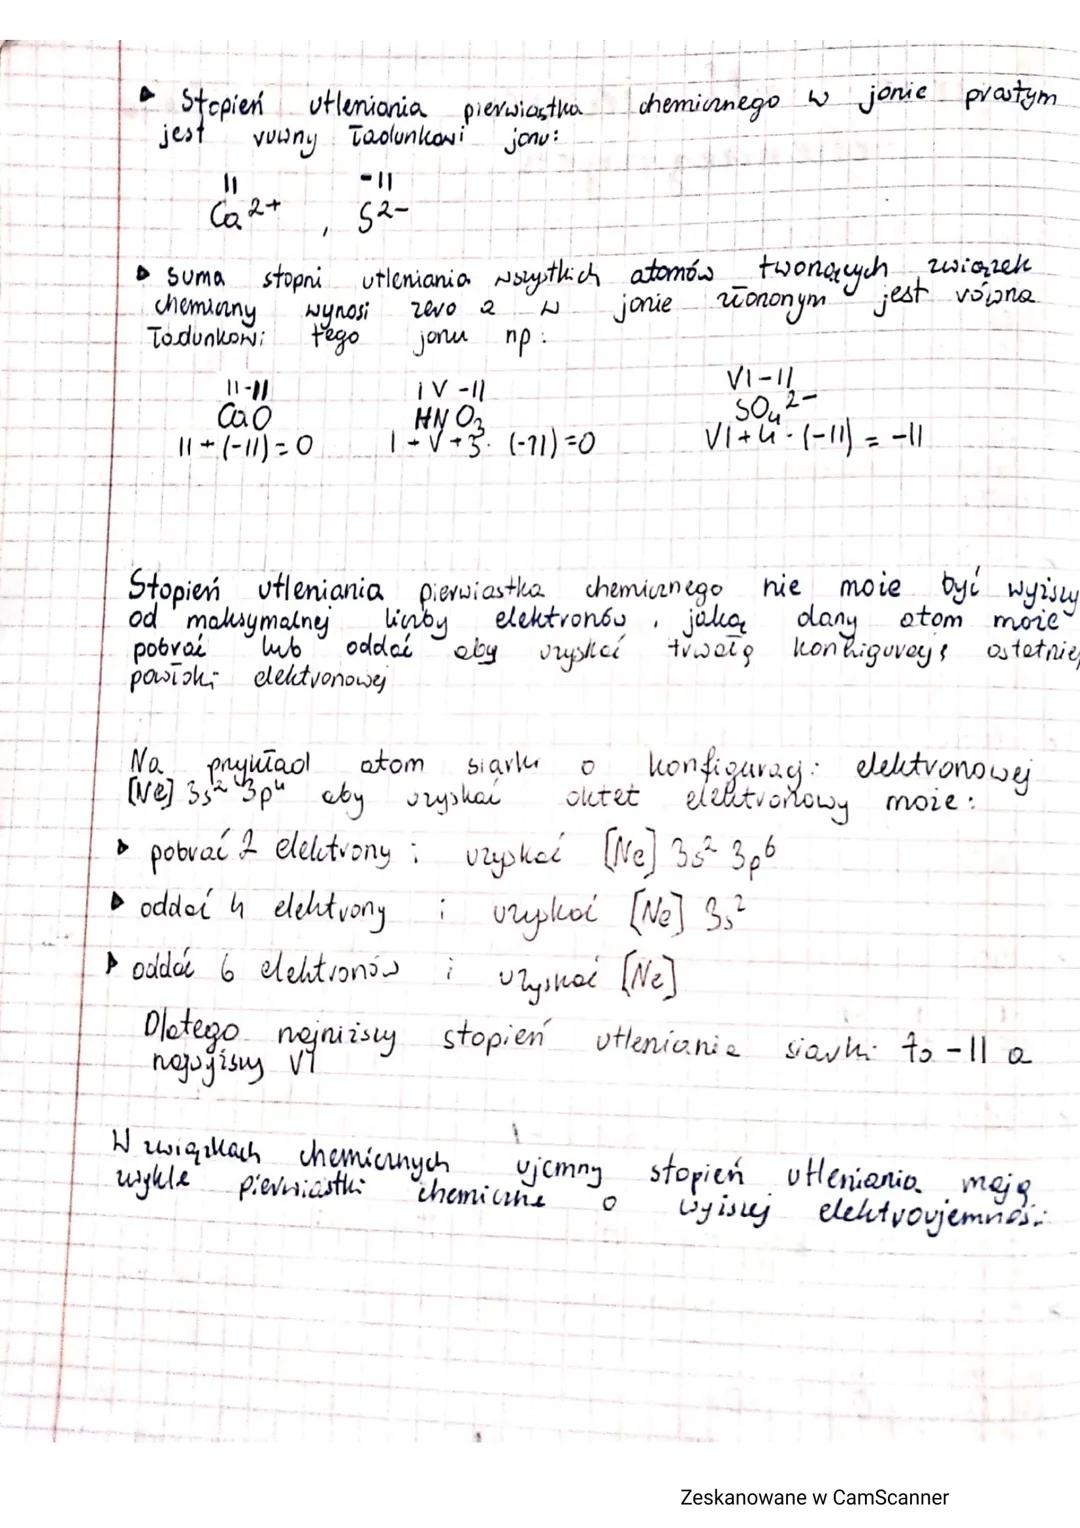 ▸ Stopień utleniania pierwiastka chemicznego w jonie prostym
jest równy ładunkowi jonu:
II -II
Ca²⁺ , S²⁻
▸ suma stopni utleniania wszystkich atomów tworzących związek
chemiczny wynosi zero a w jonie złożonym jest równa
ładunkowi tego jonu np:
II-II IV-II VI-II
CaO HNO₃ SO₄²⁻
II+(-II)=0 I+V+3·(-II)=0 VI+4·(-II)=-II
Stopień utleniania pierwiastka chemicznego nie może być wyższy
od maksymalnej liczby elektronów, jaką dany atom może
pobrać lub oddać aby uzyskać trwałą konfigurację ostatniej
powłoki elektronowej
Na przykład atom siarki o konfiguracji elektronowej
[Ne] 3s² 3p⁴ aby uzyskać oktet elektronowy może:
▸ pobrać 2 elektrony i uzyskać [Ne] 3s² 3p⁶
▸ oddać 4 elektrony i uzyskać [Ne] 3s²
▸ oddać 6 elektronów i uzyskać [Ne]
Dlatego najniższy stopień utleniania siarki to -II a
najwyższy VI
W związkach chemicznych ujemny stopień utleniania mają
zwykle pierwiastki chemiczne o wyższej elektroujemności
Zeskanowane w CamScanner